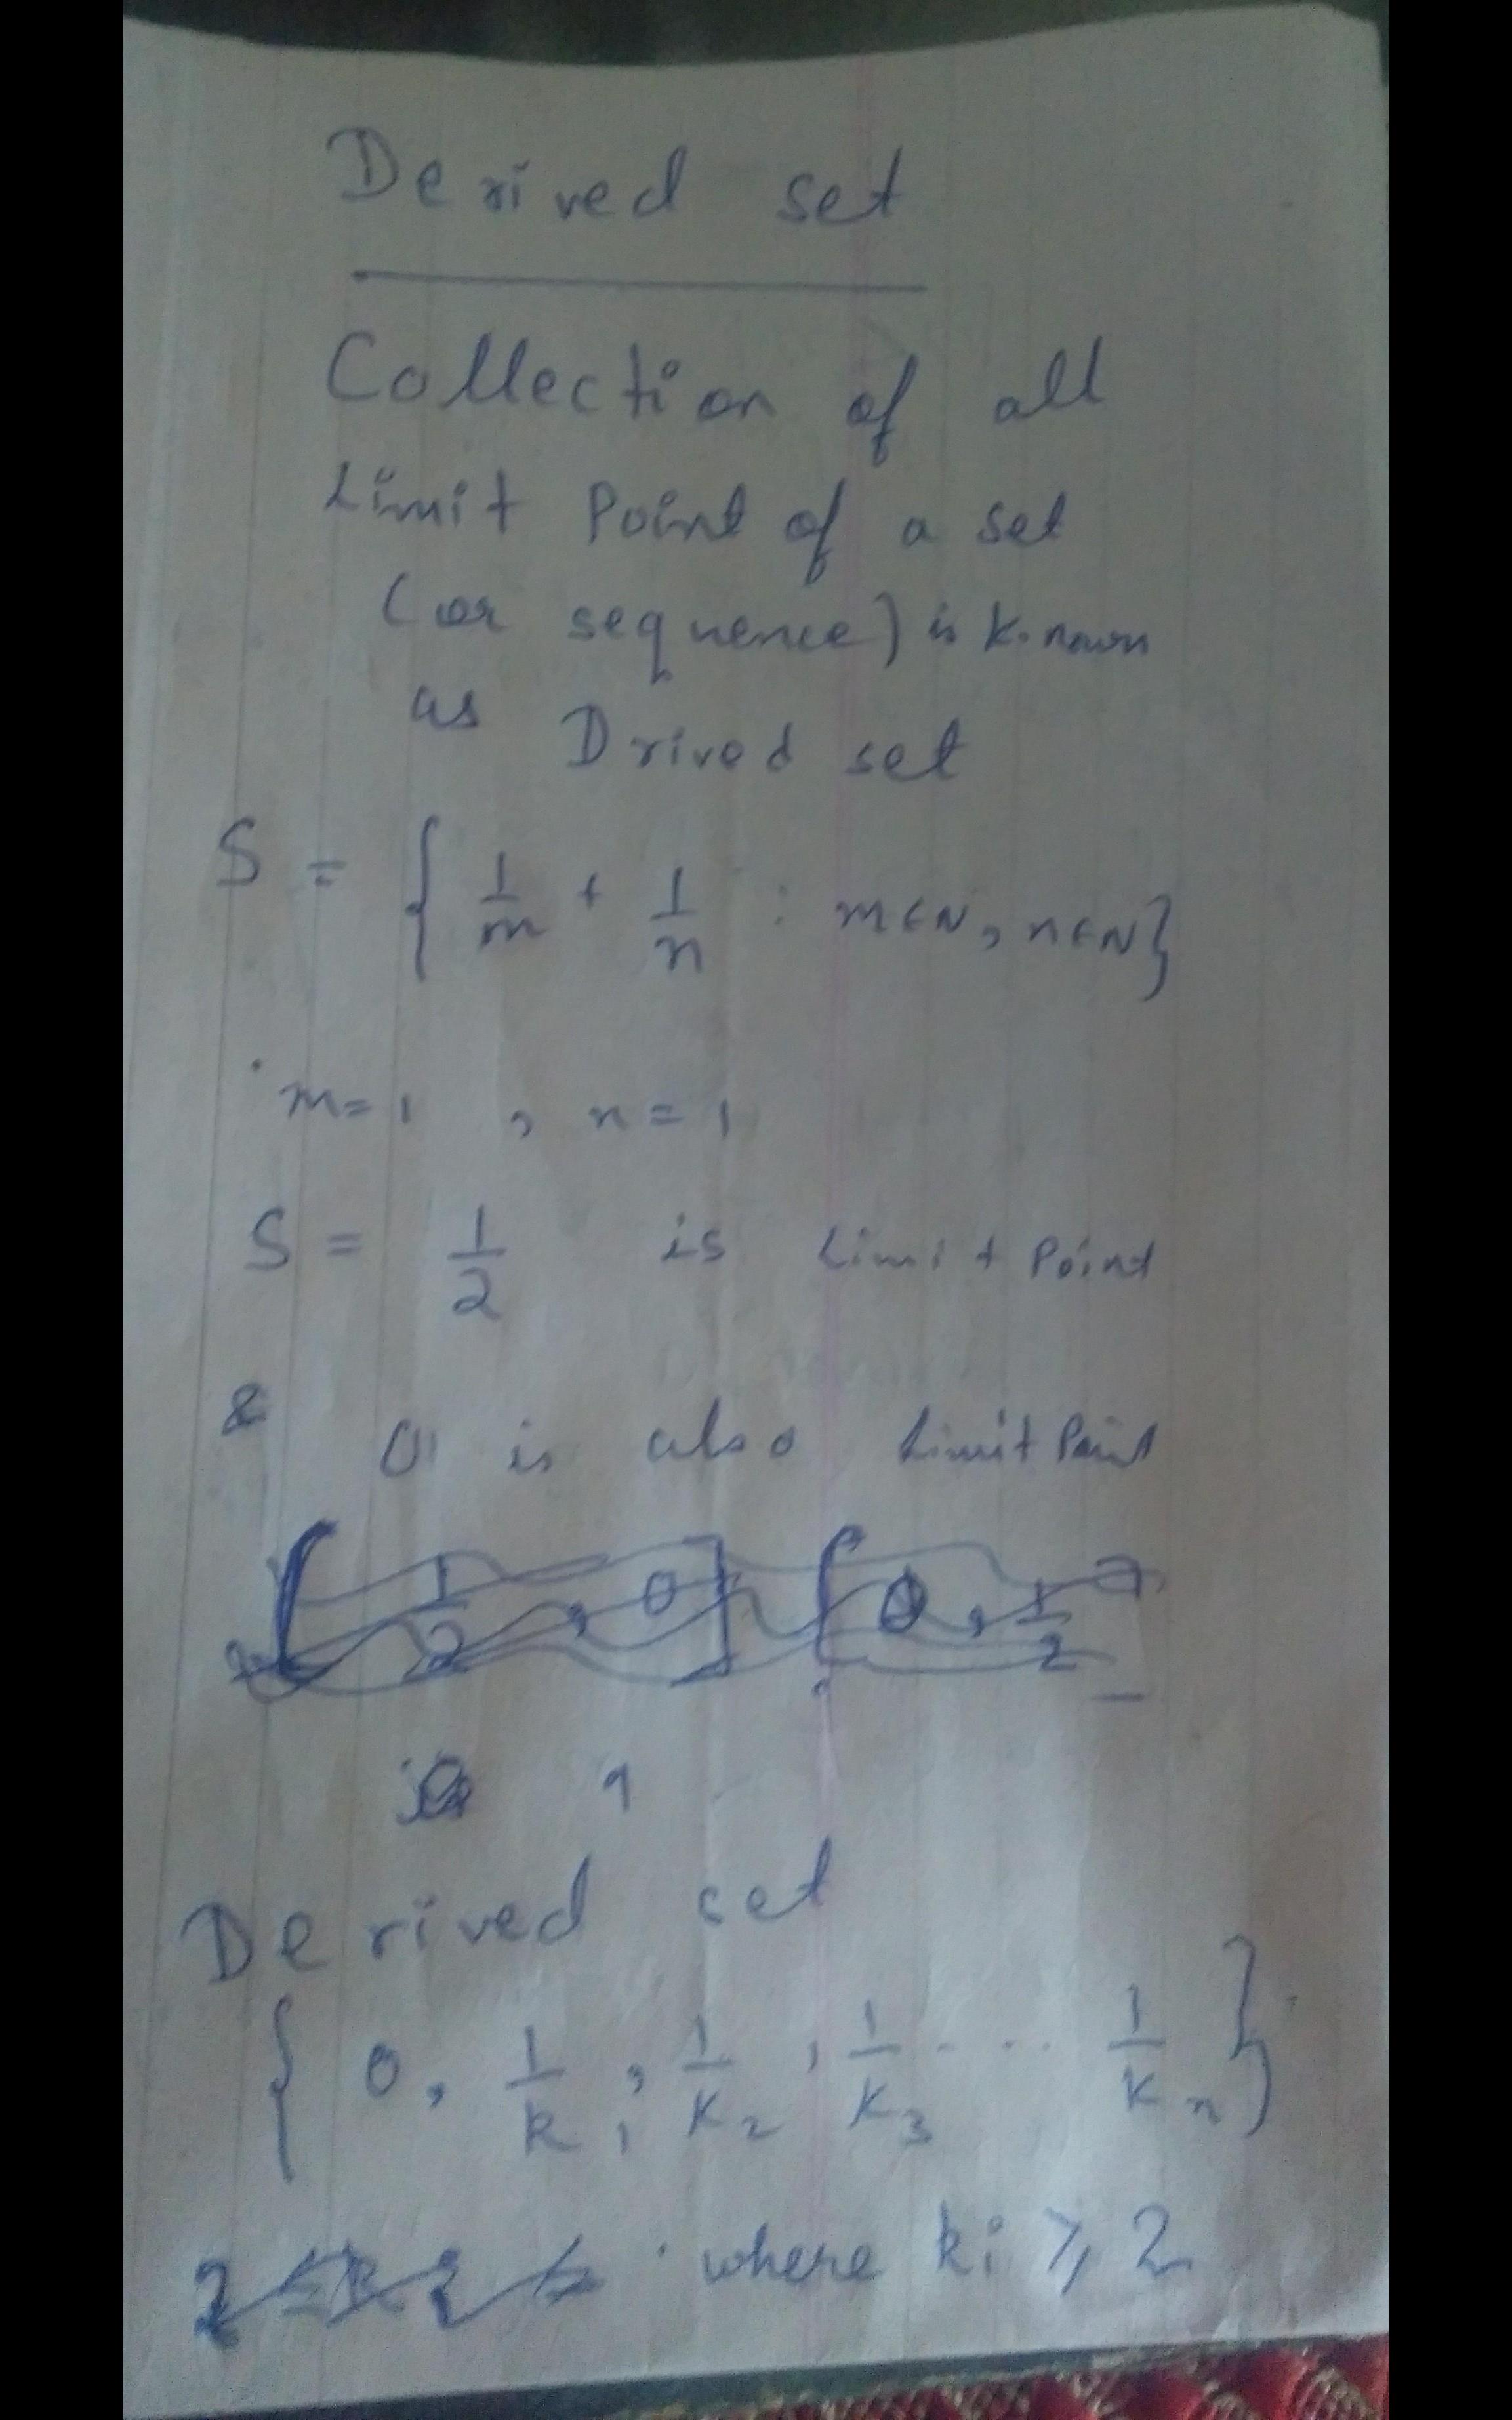 Derived set
Collection of all
Limit Point of a set
(or sequence) is known
as Drived set
S = { 1/m + 1/n : m∈N, n∈N}
m=1 , n=1
S = 1/2 is Limit Point
& 0 is also Limit Point
[ 1/2 , 0 ] [ 0 , 1/2
Derived set
{ 0, 1/k₁, 1/k₂, 1/k₃ - - - 1/kₙ }
where ki ⩾ 2